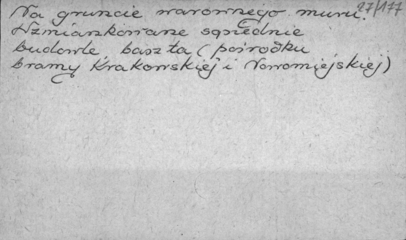 Na gruncie warownego muru. 27/177
Wzmiankowane sąsiednie
budowle baszta (pośrodku
bramy Krakowskiej i Nowomiejskiej)